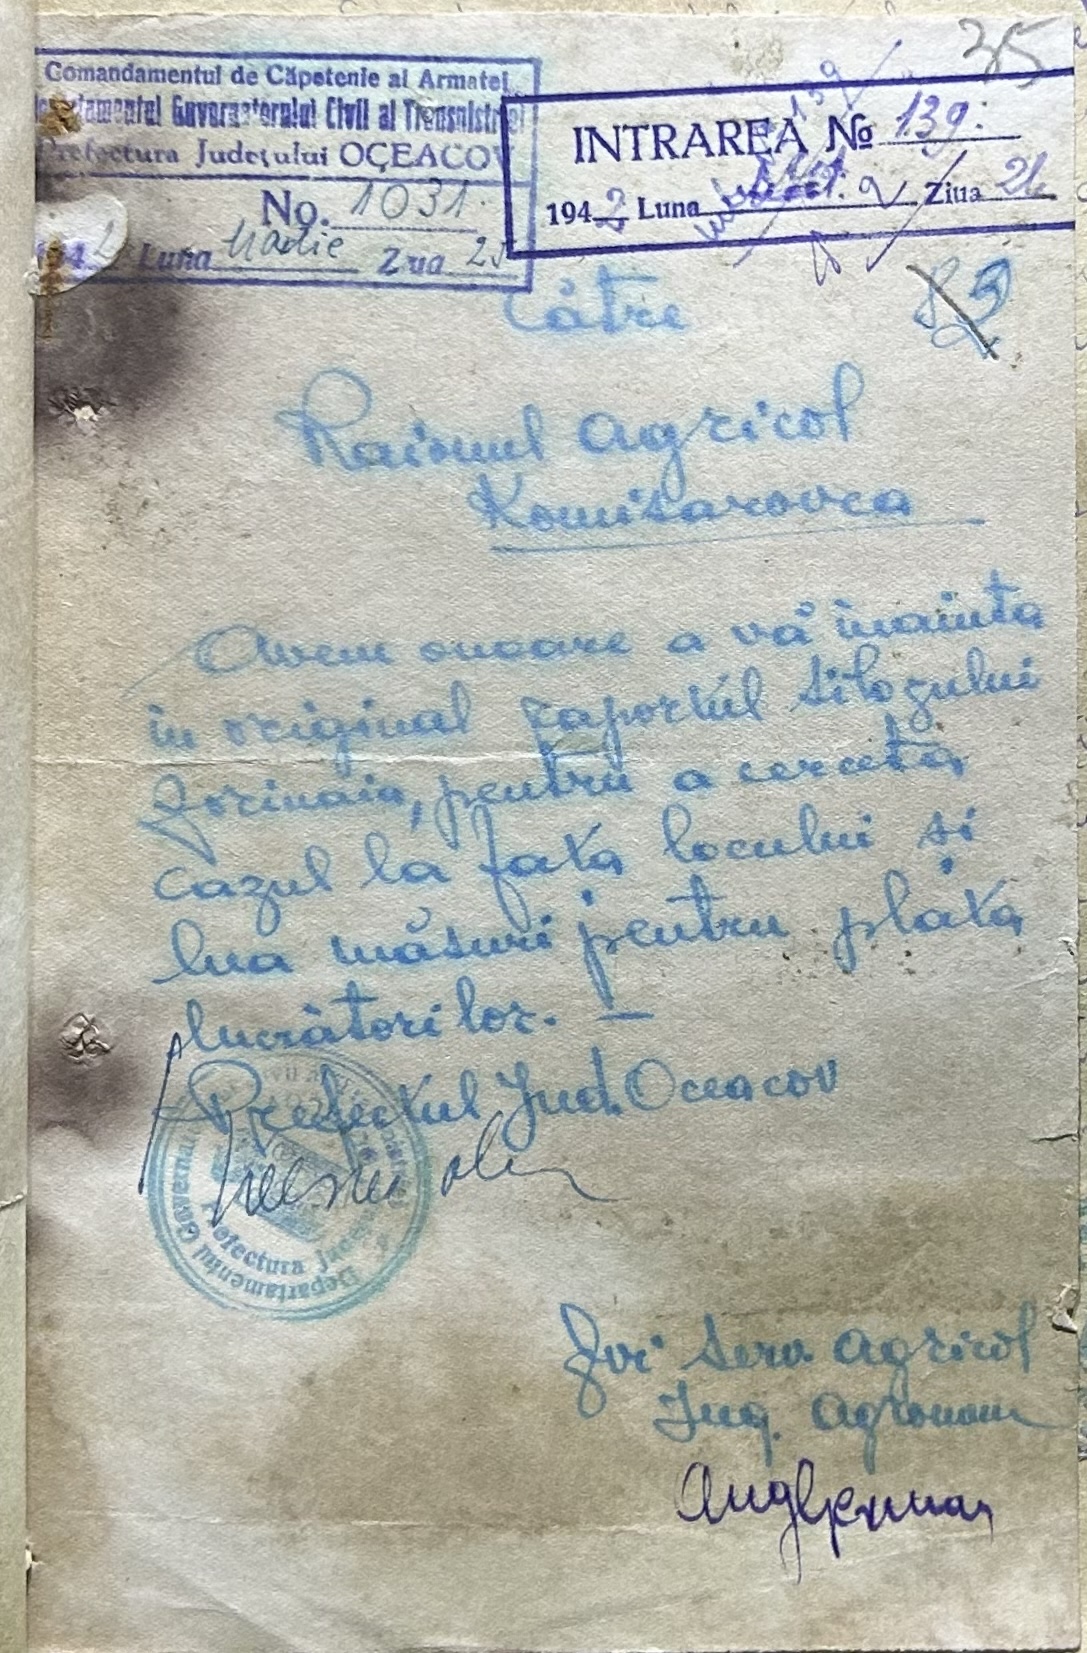 35
Comandamentul de Căpetenie al Armatei
Departamentul Guvernatorului Civil al Transnistriei
Prefectura Județului OCEACOV
No. 1031.
1942 Luna Martie Ziua 25
INTRAREA No 139.
1942 Luna Ziua 21
Către
Raionul Agricol
Komisarovca
Avem onoare a vă înainta
în original raportul silozului
, pentru a cerceta
cazul la fața locului și
lua măsuri pentru plata
lucrătorilor. —
Prefectul Jud. Oceacov
Prefectura
Departamentul Guvernam
Serv. Agricol
Ing. Agronom